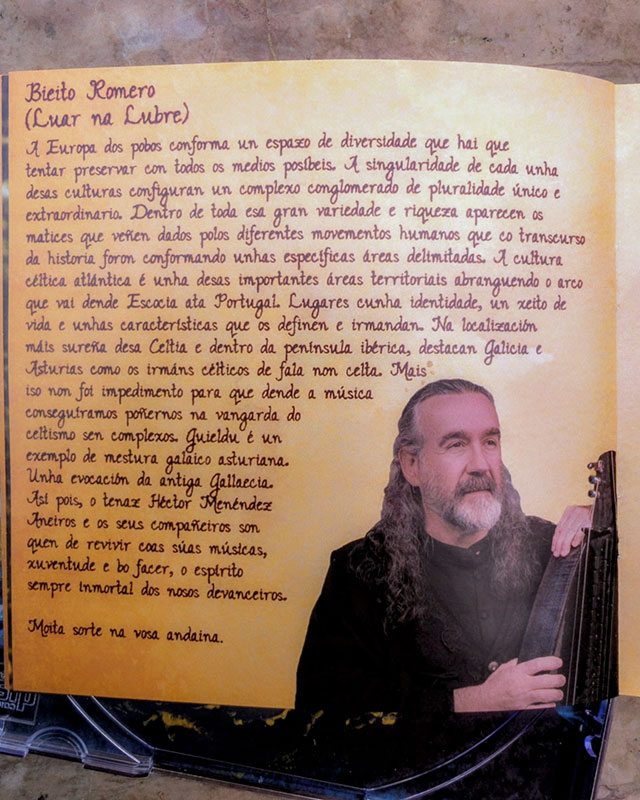 Bieito Romero
(Luar na Lubre)
A Europa dos pobos conforma un espazo de diversidade que hai que
tentar preservar con todos os medios posíbeis. A singularidade de cada unha
desas culturas configuran un complexo conglomerado de pluralidade único e
extraordinario. Dentro de toda esa gran variedade e riqueza aparecen os
matices que veñen dados polos diferentes movementos humanos que co transcurso
da historia foron conformando unhas específicas áreas delimitadas. A cultura
céltica atlántica é unha desas importantes áreas territoriais abranguendo o arco
que vai dende Escocia ata Portugal. Lugares cunha identidade, un xeito de
vida e unhas características que os definen e irmandan. Na localización
máis sureña desa Celtia e dentro da península ibérica, destacan Galicia e
Asturias como os irmáns célticos de fala non celta. Mais
iso non foi impedimento para que dende a música
conseguíramos poñernos na vangarda do
celtismo sen complexos. Guieldu é un
exemplo de mestura galaico asturiana.
Unha evocación da antiga Gallaecia.
Así pois, o tenaz Héctor Menéndez
Aneiros e os seus compañeiros son
quen de revivir coas súas músicas,
xuventude e bo facer, o espírito
sempre inmortal dos nosos devanceiros.
Moita sorte na vosa andaina.